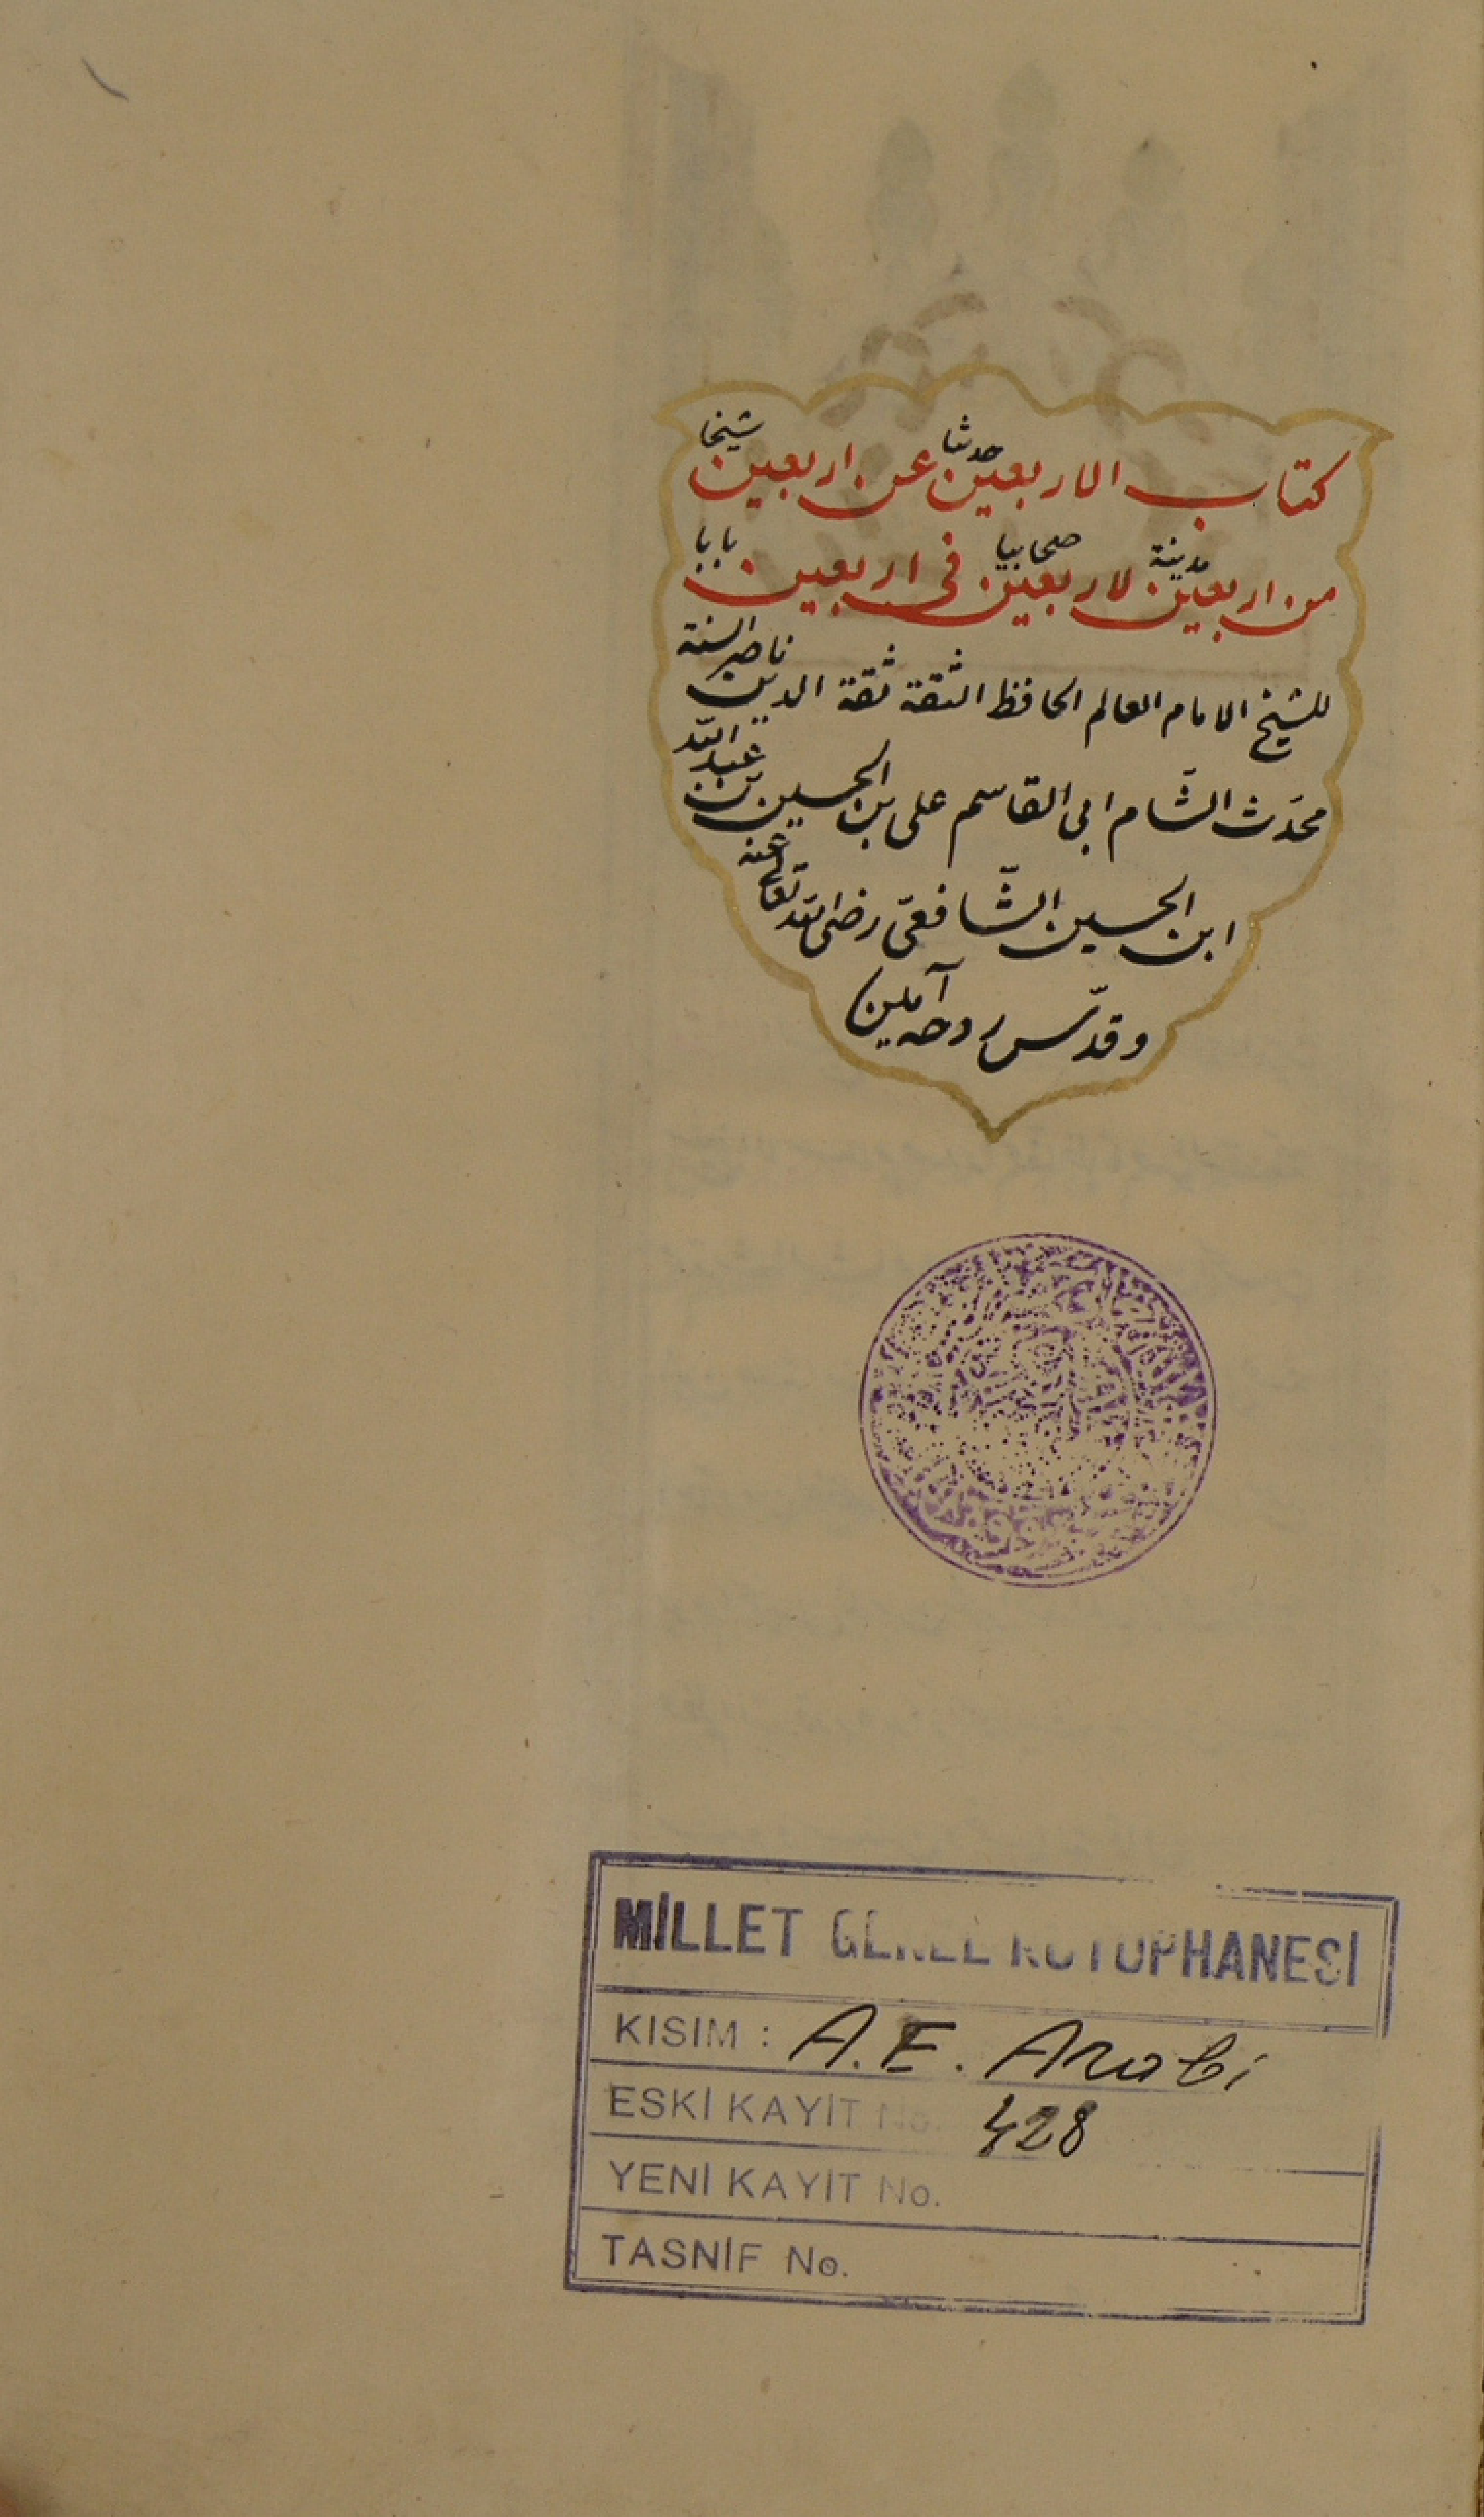 كتاب الاربعين حدثنا عن اربعين شيخا
من اربعين مدينة لاربعين صحابيا فى اربعين بابا
للشيخ الامام العالم الحافظ الثقة ثقة الدين ناصر السنة
محدّث الشّام ابى القاسم على بن الحسين بن عبد الله
ابن الحسين الشّافعىّ رضى الله تعالى عنه
وقدّس روحه آمين
MİLLET GENEL KÜTÜPHANESİ
KISIM : A.E. Arabi
ESKİ KAYİT No. 428
YENİ KAYİT No.
TASNİF No.